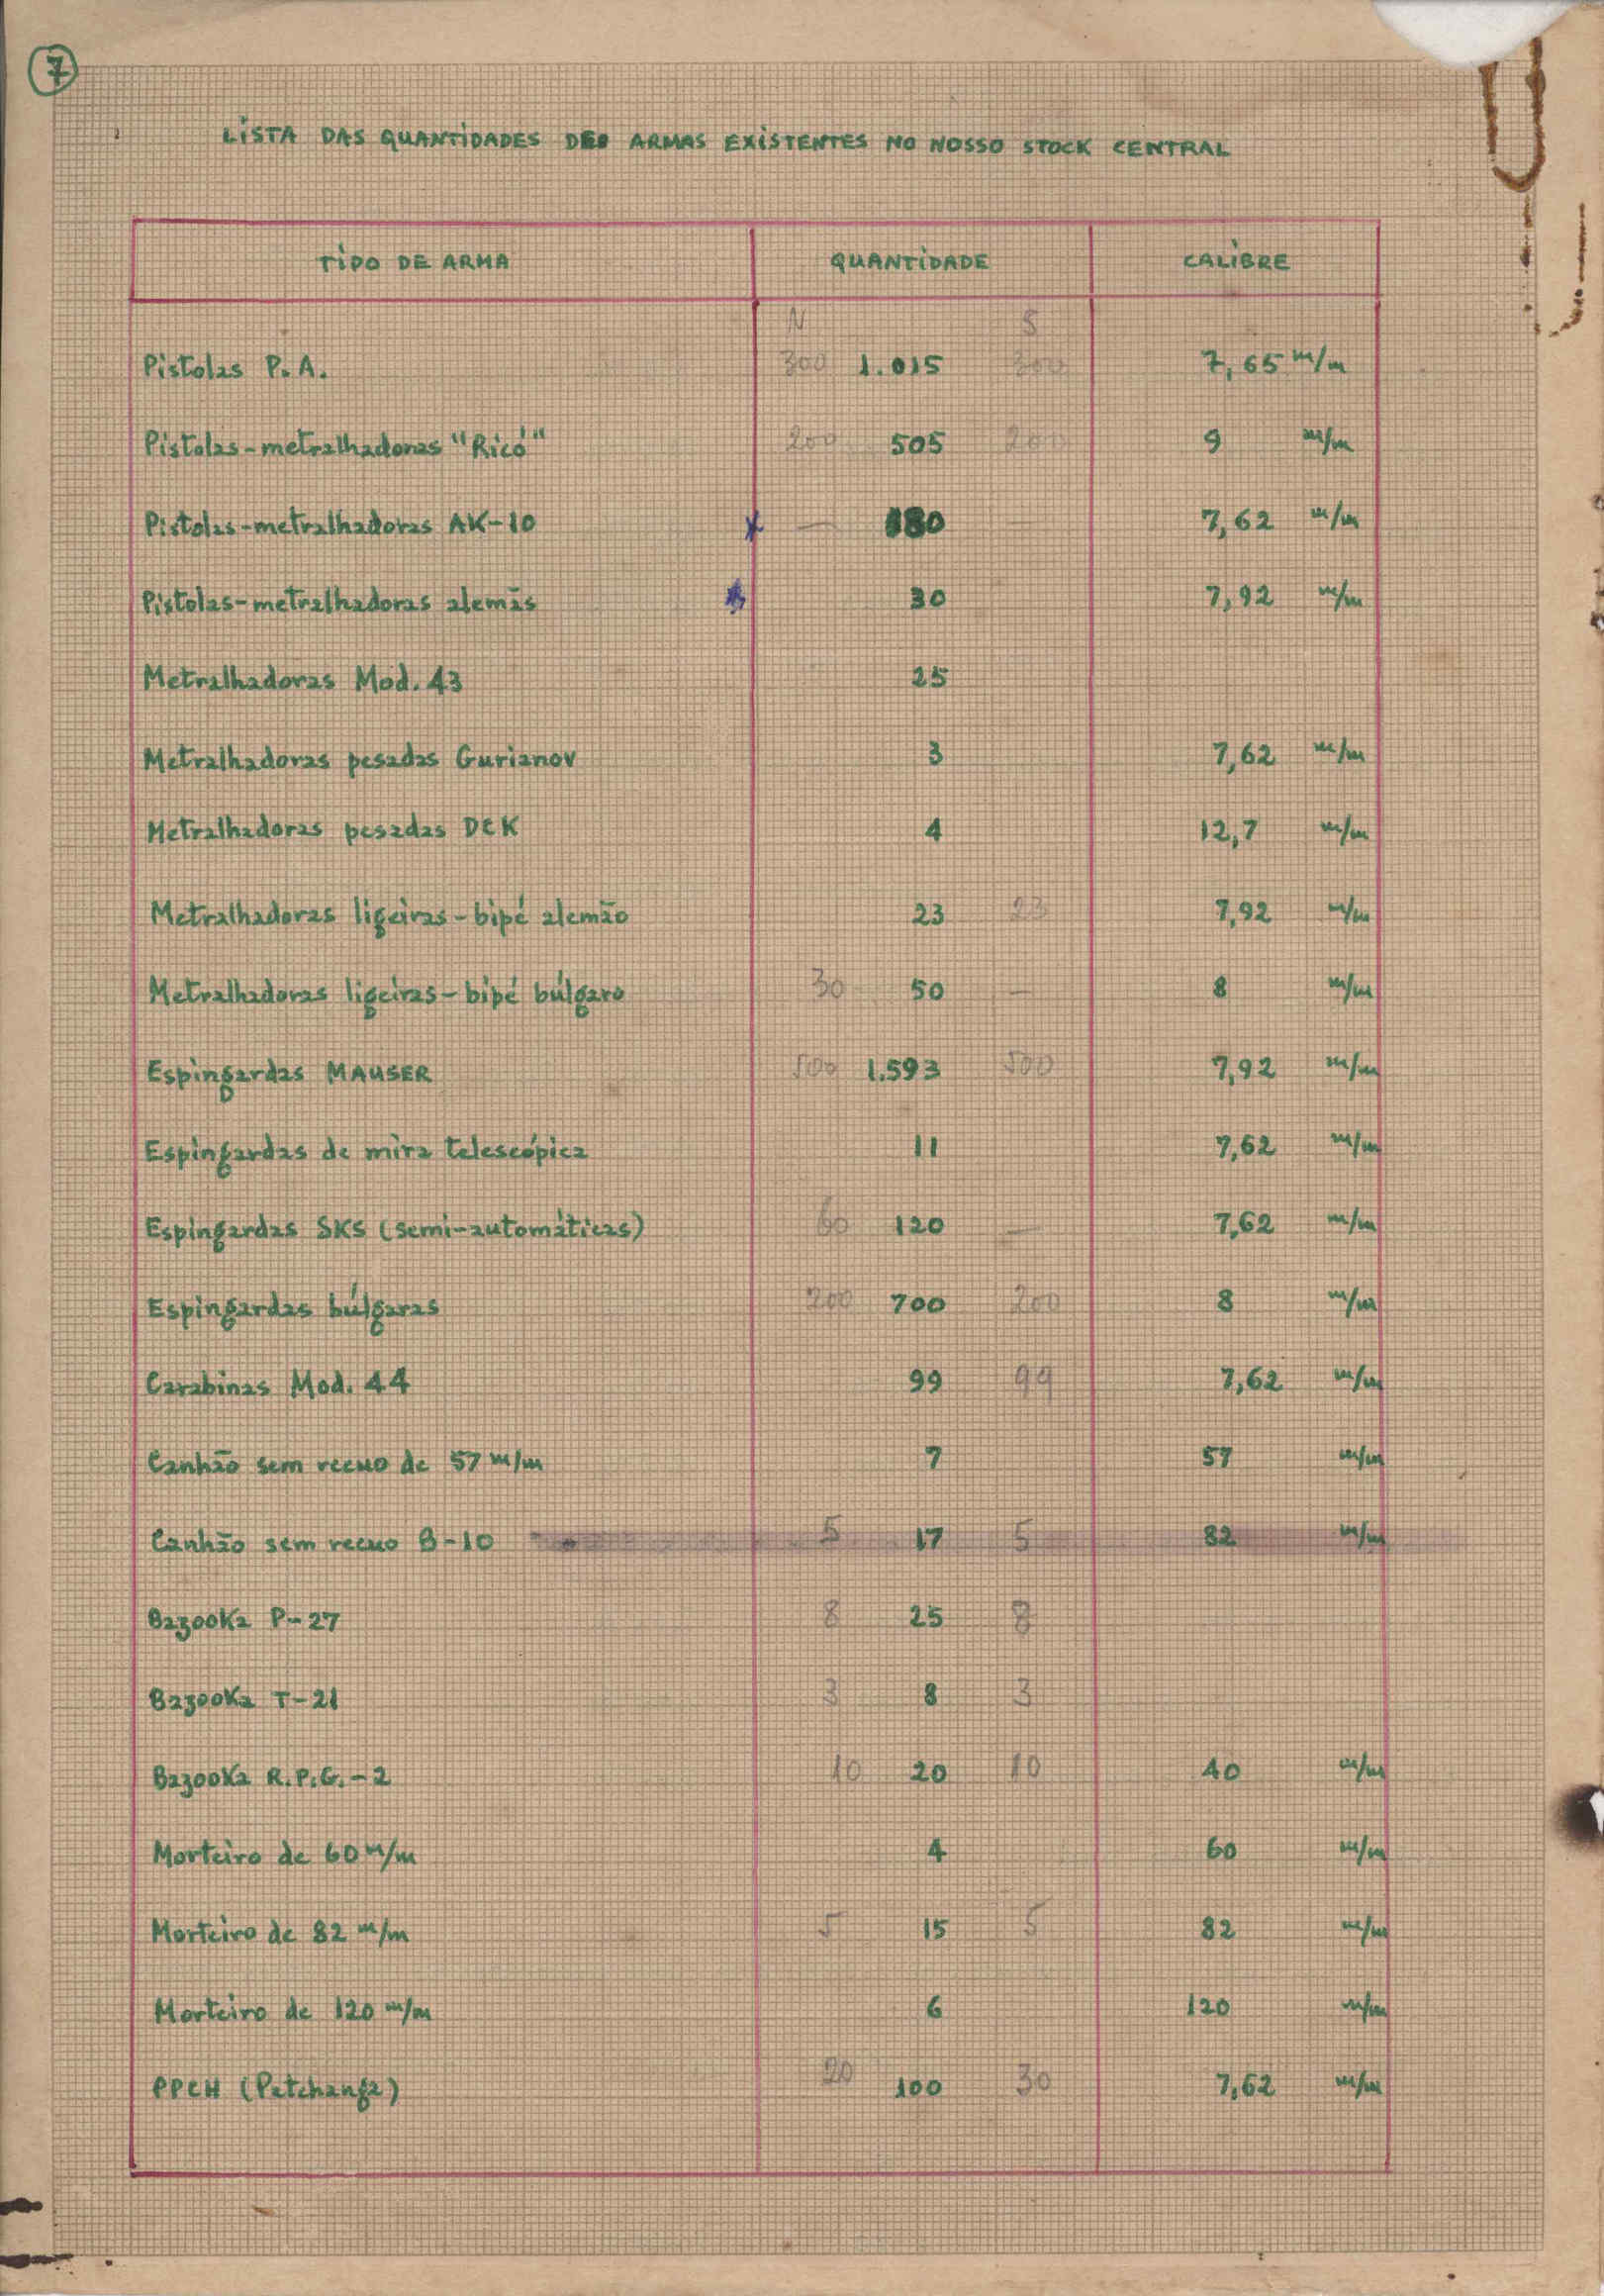 7
LISTA DAS QUANTIDADES DE ARMAS EXISTENTES NO NOSSO STOCK CENTRAL
TIPO DE ARMA QUANTIDADE CALIBRE
N S
Pistolas P.A. 300 1.015 300 7,65 m/m
Pistolas-metralhadoras "Ricó" 200 505 200 9 m/m
Pistolas-metralhadoras AK-10 x — 180 7,62 m/m
Pistolas-metralhadoras alemãs 30 7,92 m/m
Metralhadoras Mod. 43 25
Metralhadoras pesadas Gurianov 3 7,62 m/m
Metralhadoras pesadas DCK 4 12,7 m/m
Metralhadoras ligeiras-bipé alemão 23 23 7,92 m/m
Metralhadoras ligeiras-bipé búlgaro 30 50 — 8 m/m
Espingardas MAUSER 500 1.593 500 7,92 m/m
Espingardas de mira telescópica 11 7,62 m/m
Espingardas SKS (semi-automáticas) 60 120 — 7,62 m/m
Espingardas búlgaras 200 700 200 8 m/m
Carabinas Mod. 44 99 99 7,62 m/m
Canhão sem recuo de 57 m/m 7 57 m/m
Canhão sem recuo B-10 5 17 5 82 m/m
Bazooka P-27 8 25 8
Bazooka T-21 3 8 3
Bazooka R.P.G.-2 10 20 10 40 m/m
Morteiro de 60 m/m 4 60 m/m
Morteiro de 82 m/m 5 15 5 82 m/m
Morteiro de 120 m/m 6 120 m/m
PPCH (Patchanga) 20 100 30 7,62 m/m